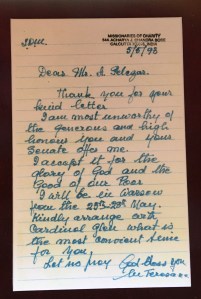 MISSIONARIES OF CHARITY
54A ACHARYA J. CHANDRA BOSE
CALCUTTA INDIA
5/5/93
Dear Mr.
Thank you for your
kind letter
I am most unworthy of
the generous and high
honour you and your
Senate offer me.
I accept it for the
glory of God and the
Good of our Poor
I will be in Warsaw
from the May.
Kindly arrange with
Cardinal Glemp what is
the most time
for you.
Let us pray God bless you